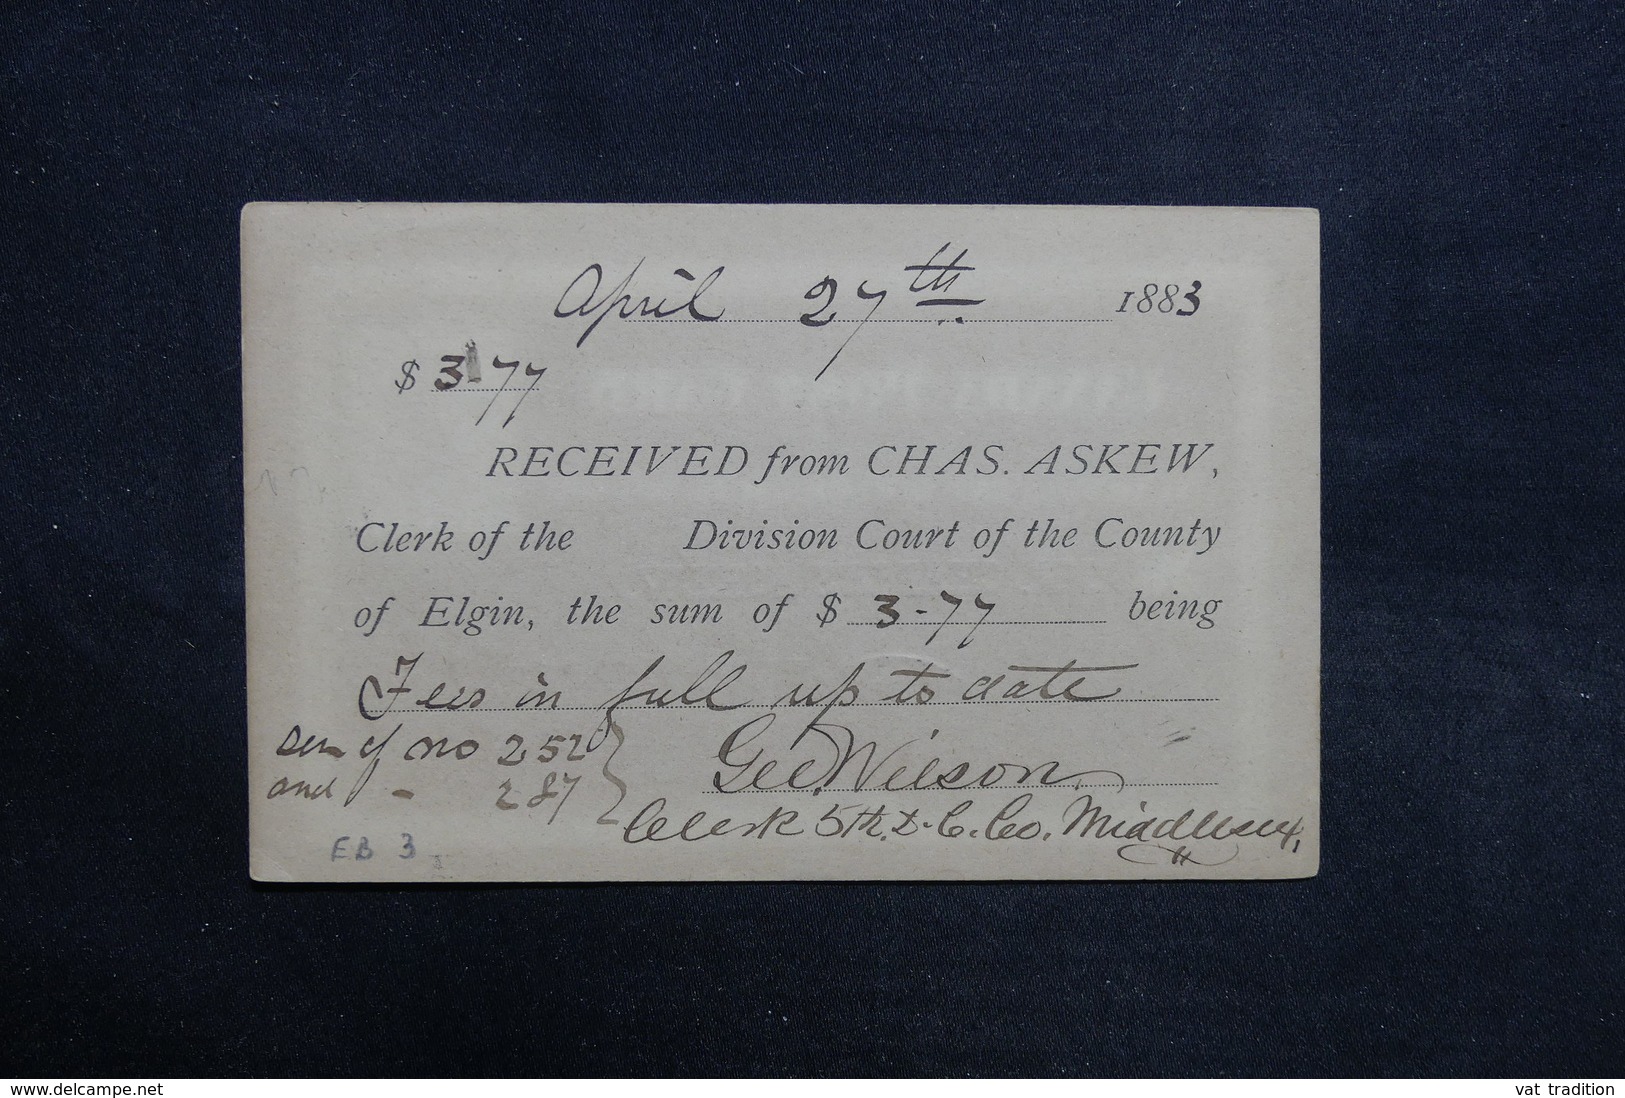 April 27th 1883
$ 3-77
RECEIVED from CHAS. ASKEW,
Clerk of the Division Court of the County
of Elgin, the sum of $ 3-77 being
Fees in full up to date
Ser of no 252
and - 287
Geo. Wilson
Clerk 5th. D. C. Co. Middlesex,
EB 3
www.delcampe.net
vat tradition